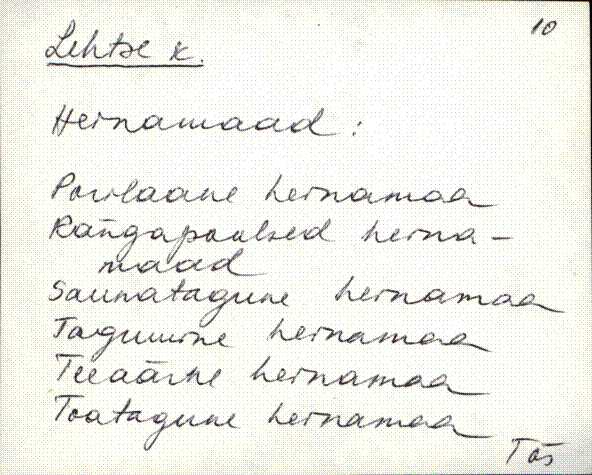 10
Lehtse k.
Heinamaad:
Porilaane heinamaa
Rängapoolsed heina-
maad
Saunatagune heinamaa
Tagumine heinamaa
Teeäärne heinamaa
Toatagune heinamaa